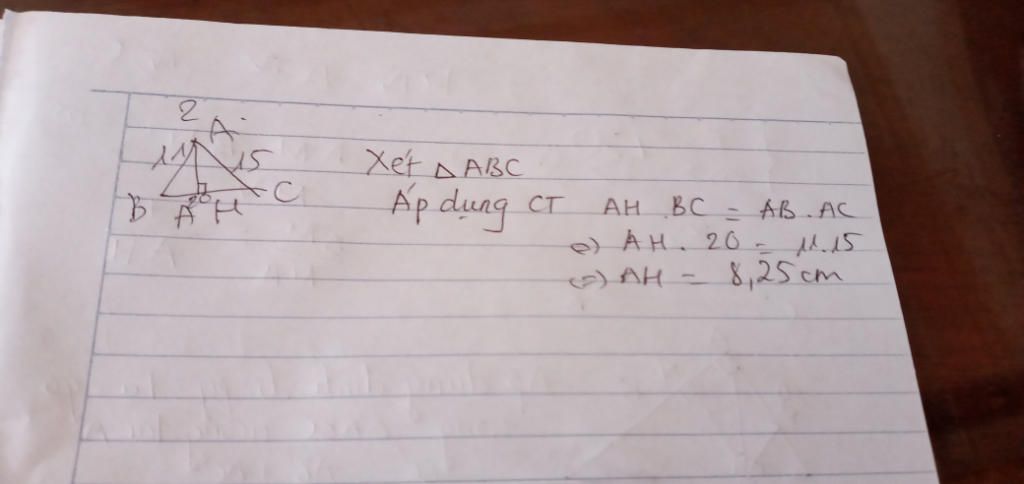 2
A
11 15
B A H C
20
Xét △ABC
Áp dụng CT AH . BC = AB . AC
⇔) AH . 20 = 11.15
(=) AH = 8,25 cm